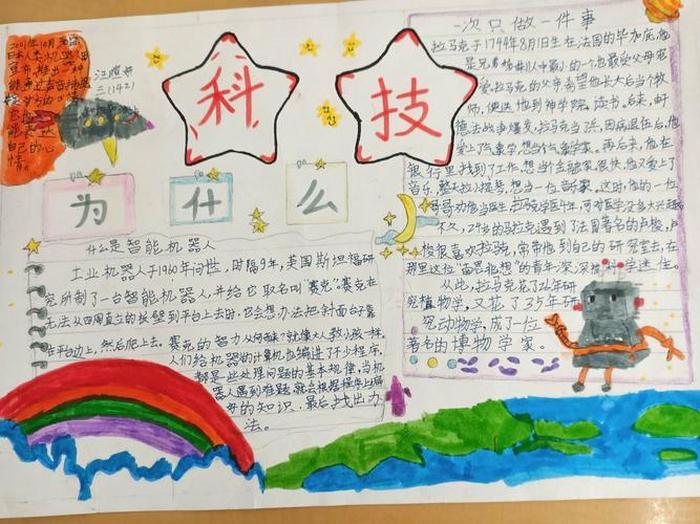 科技
为什么
什么是智能机器人
工业机器人于1960年问世,时隔9年,美国斯坦福研
究所制了一台智能机器人,并给它取名叫"赛克"赛克在
无法从四周直立的
到平台上去时,它会想办法把斜面台靠
在平台边上,然后爬上去。赛克的智力从何而来?就像大人教小孩一样。
人们给机器的计算机也编进了不少程序,
都是些处理问题的基本规律,当机
器人遇到难题,就会根据程序上编
的知识,最后找出办
法。
一次只做一件事
拉马克于1744年8月1日生在法国的毕加底,他
是兄弟姊妹11人中最小的一个也最受父母宠
爱。拉马克的父亲希望他长大后当个牧
师,便送他到神学院读书。后来,由
德法战争爆发,拉马克当了兵。因病退伍后,他
爱上了气象学,想当个气象学家。再后来,他在
银行里找到了工作,想当个金融家。很快,他又爱上了
音乐,整天拉小提琴,想当一位音乐家。这时,他的一位
哥哥劝他当医生,拉马克学医4年,可对医学
不久,24岁的马拉克遇到了法国著名的卢梭,卢
梭很喜欢拉马克,常带他到自己的研究室去,在
那里这位"南思北想"的青年深深
科学迷住。
从此,拉马克花了26年研
究植物学,又花了35年研
究动物学,成了一位
著名的博物学家。
2001年10月
日本
自己的心
情。
汪
三(142)